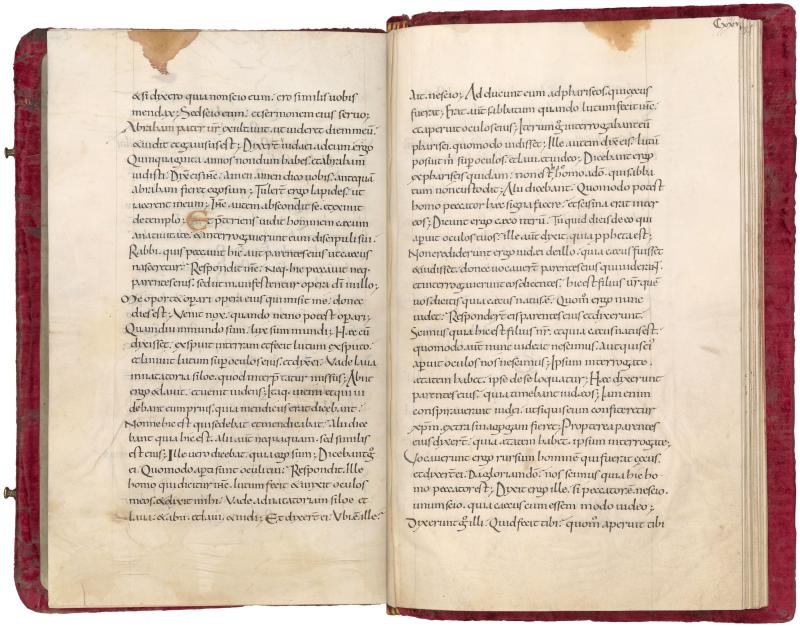 &si dixero quia nonscio eum . ero similis vobis
mendax ; Sedscio eum . et sermonem eius servo ;
Abraham pater vr̄ exultavit . ut videret diem meū .
& vidit et gavisus est ; Dixer̄ iudaei ad eum ergo
Quinquaginta annos nondum habes . et abrahā
vidisti ; Dix̄ eis ihc̄ . Amen amen dico vobis . antequā
abraham fieret ego sum ; Tuler̄ ergo lapides . ut
iacerent in eum ; Ihc̄ autem abscondit se . et exivit
de templo ; Et p̄teriens vidit hominem caecum
anativitate . & interrogaverunt eum discipuli sui .
Rabbi . quis peccavit hic aut parentes eius ut caecus
nasceretur ; Respondit ihc̄ . Neq; hic peccavit neq;
parentes eius . sed ut manifestentur opera dī inillo ;
Me oport& opari opera eius qui misit me . donec
dies est ; Venit nox . quando nemo potest opari ;
Quamdiu inmundo sum . lux sum mundi ; Haec cū
dixisset . expuit interram et fecit lutum exsputo .
et linivit lutum sup oculos eius . et dix̄ ei ; Vade lava
innatatoria siloe . quod interp̄tatur missus ; Abiit
ergo et lavit . et venit videns ; Itaq; vicini et qui vi
debant eum prius . quia mendicus erat dicebant .
Nonne hic est qui sedebat et mendicabat . Alii dice
bant quia hic est . alii aut̄ nequaquam . sed similis
est eius ; Ille vero dicebat . quia ego sum ; Dicebant g̊
ei . Quomodo aperti sunt oculi tui ; Respondit . Ille
homo qui dicitur ihc̄ . lutum fecit & unxit oculos
meos . & dixit mihi . Vade ad natatoriam siloe et
lava . & abii . et lavi . & vidi ; Et dixer̄ ei . Ubi ē ille ;
Ait . nescio ; Ad ducunt eum ad phariseos . qui cecus
fuerat ; Erat aut̄ sabbatum quando lutum fecit ihc̄ .
et aperuit oculos eius ; Iterum g̊ interrogabant eū
pharisei . quomodo vidisset ; Ille autem dix̄ eis . lutū
posuit m̄ sup oculos . et lavi . et video ; Dicebant ergo
ex phariseis quidam . non est hic homo adō . qui sabba
tum non custodit ; Alii dicebant . Quomodo potest
homo peccator haec signa facere . et scisma erat inter
eos ; Dicunt ergo caeco iterū . Tu quid dicis de eo qui
apuit oculos tuos . ille aut̄ dixit . quia ppheta est ;
Non crediderunt ergo iudaei de illo . quia caecus fuisset
& vidisset . donec vocaverē parentes eius qui viderat̄ .
et interrogaverunt eos dicentes . hic est filius vr̄ quē
vos dicitis quia caecus natus ē . Quom̊ ergo nunc
videt . Responder̄ eis parentes eius et dixerunt .
Scimus quia hic est filius nr̄ . et quia caecus natus est .
quomodo aut̄ nunc videat nescimus . Aut quis ei
apuit oculos nos nescimus ; Ipsum interrogate .
aetatem habet . ipse de se loquatur ; Haec dixerunt
parentes eius . quia timebant iudaeos ; Iam enim
conspiraverunt iudei . ut si quis eum confiteretur
xpm̄ . extra sinagogam fieret ; Propterea parentes
eius dixer̄ . quia aetatem habet . ipsum interrogate ;
Vocaverunt ergo rursum hominē qui fuerat cecus .
et dixer̄ ei . Da gloriam dō . nos scimus quia hic ho
mo peccator est ; Dixit ergo ille . si peccator ē nescio .
unum scio . quia caecus cum essem modo video ;
Dixerunt g̊ illi . Quid fecit tibi . quom̊ aperuit tibi